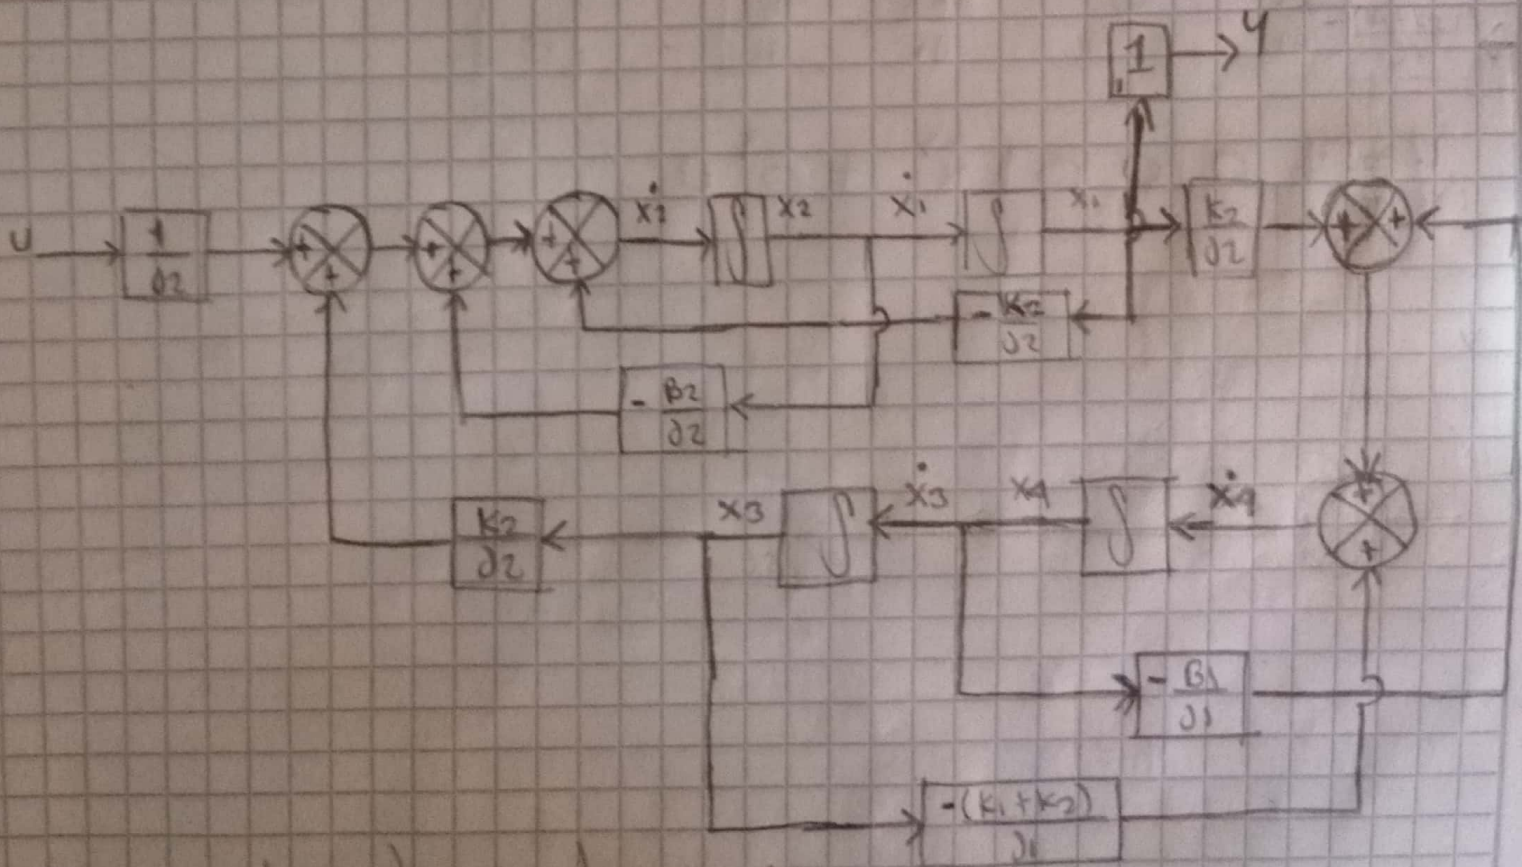 1 → y
u 1/J2 + + + + + + ẋ2 ∫ x2 ẋ1 ∫ x1 K2/J2 + +
-K2/J2
-B2/J2
K2/J2 x3 ∫ ẋ3 x4 ∫ ẋ4 + +
-B1/J1
-(K1+K2)/J1